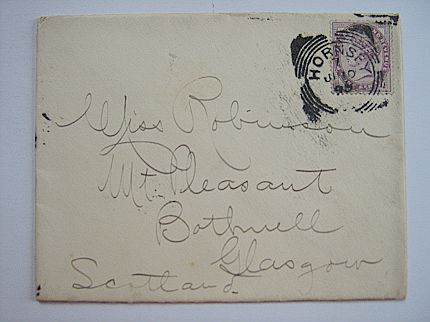 HORNSEY
Miss Robinson
Mt. Pleasant
Bothwell
Glasgow
Scotland